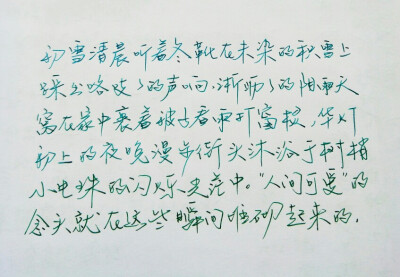 初雪清晨听着冬靴在未染的积雪上
踩出咯吱々的声响,淅昕々的阴雨天
窝在家中裹着被子看雨打窗棂,华灯
初上的夜晚漫步街头沐浴于树梢
小电珠的闪烁光茫中。“人间可爱”的
念头就在这些瞬间堆砌起来的.